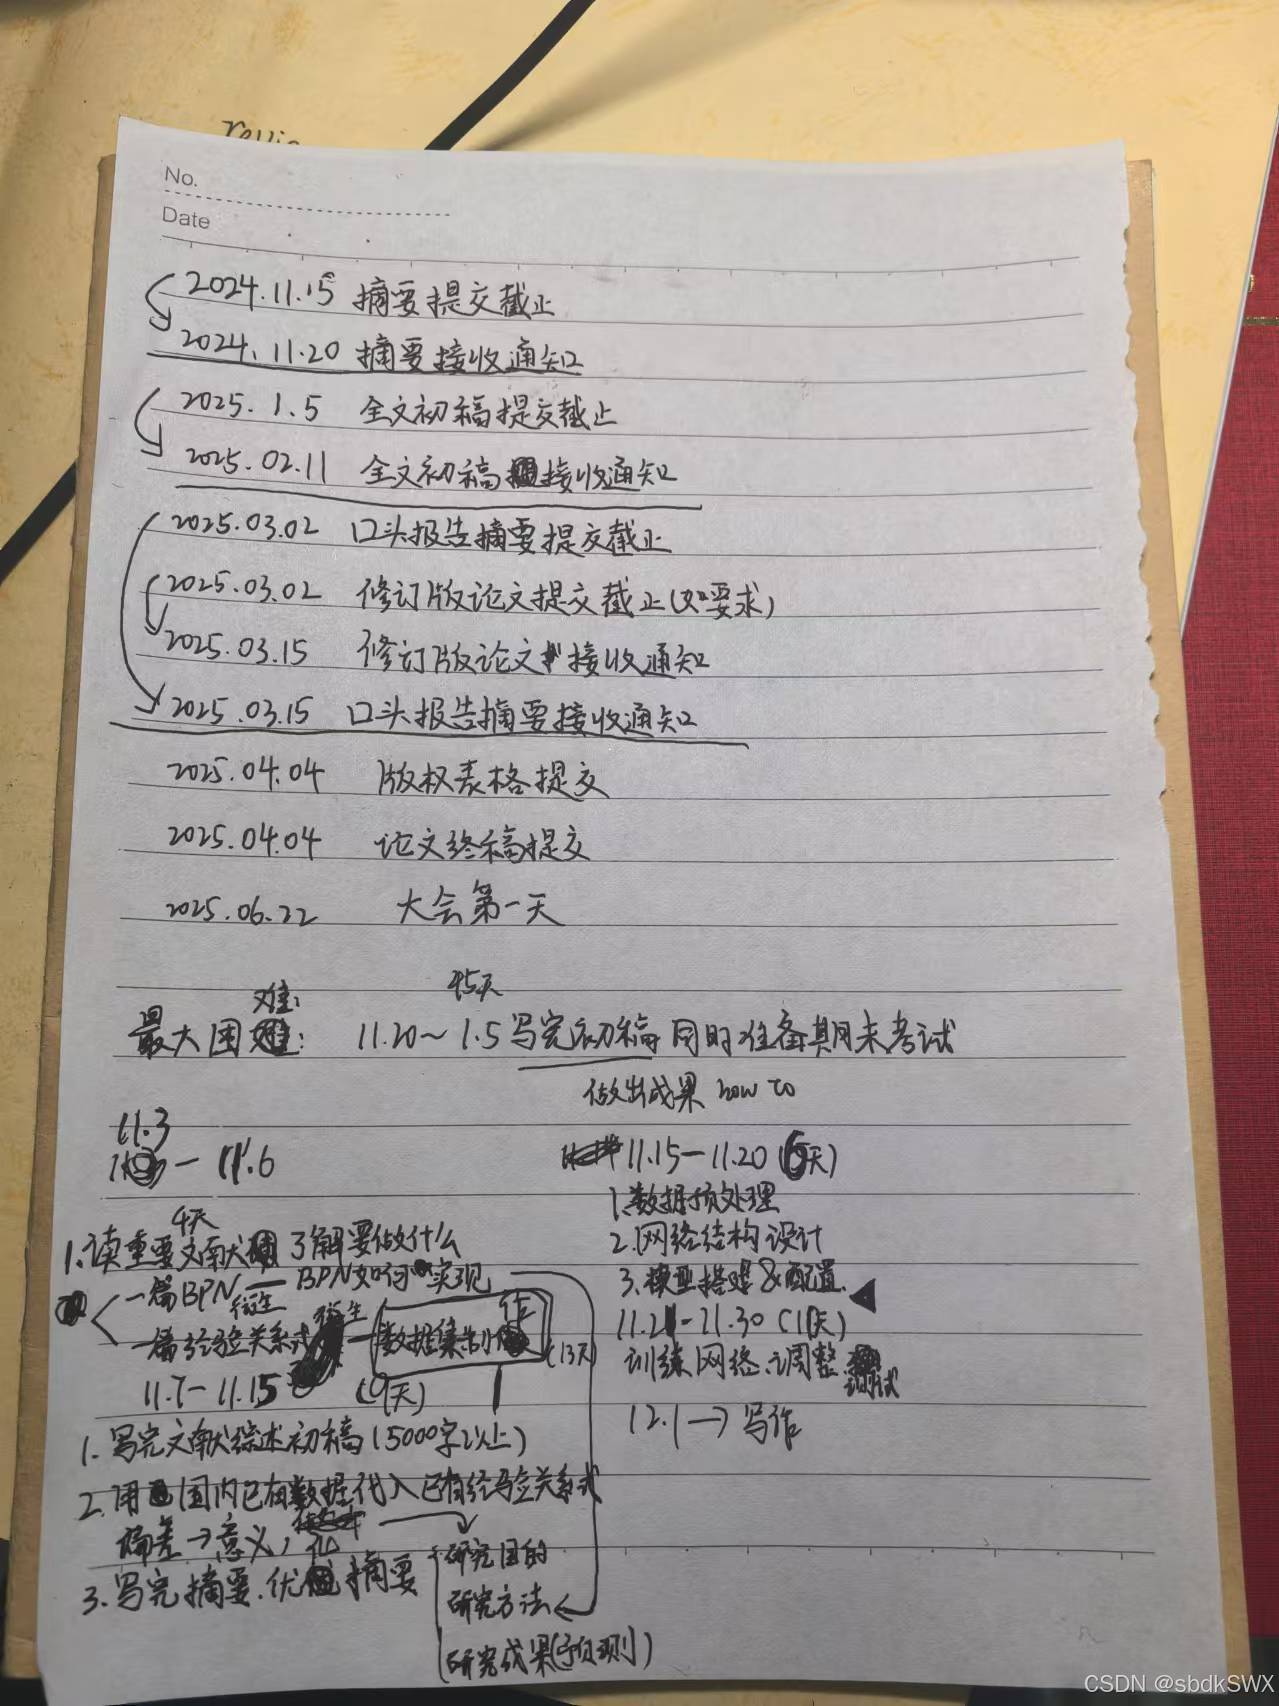 No.
Date
2024.11.15 摘要提交截止
2024.11.20 摘要接收通知
2025.1.5 全文初稿提交截止
2025.02.11 全文初稿接收通知
2025.03.02 口头报告摘要提交截止
2025.03.02 修订版论文提交截止(如要求)
2025.03.15 修订版论文接收通知
2025.03.15 口头报告摘要接收通知
2025.04.04 版权表格提交
2025.04.04 论文终稿提交
2025.06.22 大会第一天
难:
45天
最大困难: 11.20~1.5写完初稿同时准备期末考试
做出成果 how to
11.3
— 11.6
4天
1.读重要文献 了解要做什么
一篇BPN — BPN如何实现
衍生
一篇经验关系式
衍生
数据集制作
(13天)
11.7-11.15 (9天)
1. 写完文献综述初稿(5000字以上)
2. 用国内已有数据代入已有经验关系式
偏差→意义,
3. 写完摘要.优化摘要
研究目的
研究方法
研究成果(预测)
11.15-11.20 (6天)
1.数据预处理
2.网络结构设计
3.模型搭建&配置
11.21-11.30 (10天)
训练网络.调整
测试
12.1→写作
CSDN @sbdkSWX